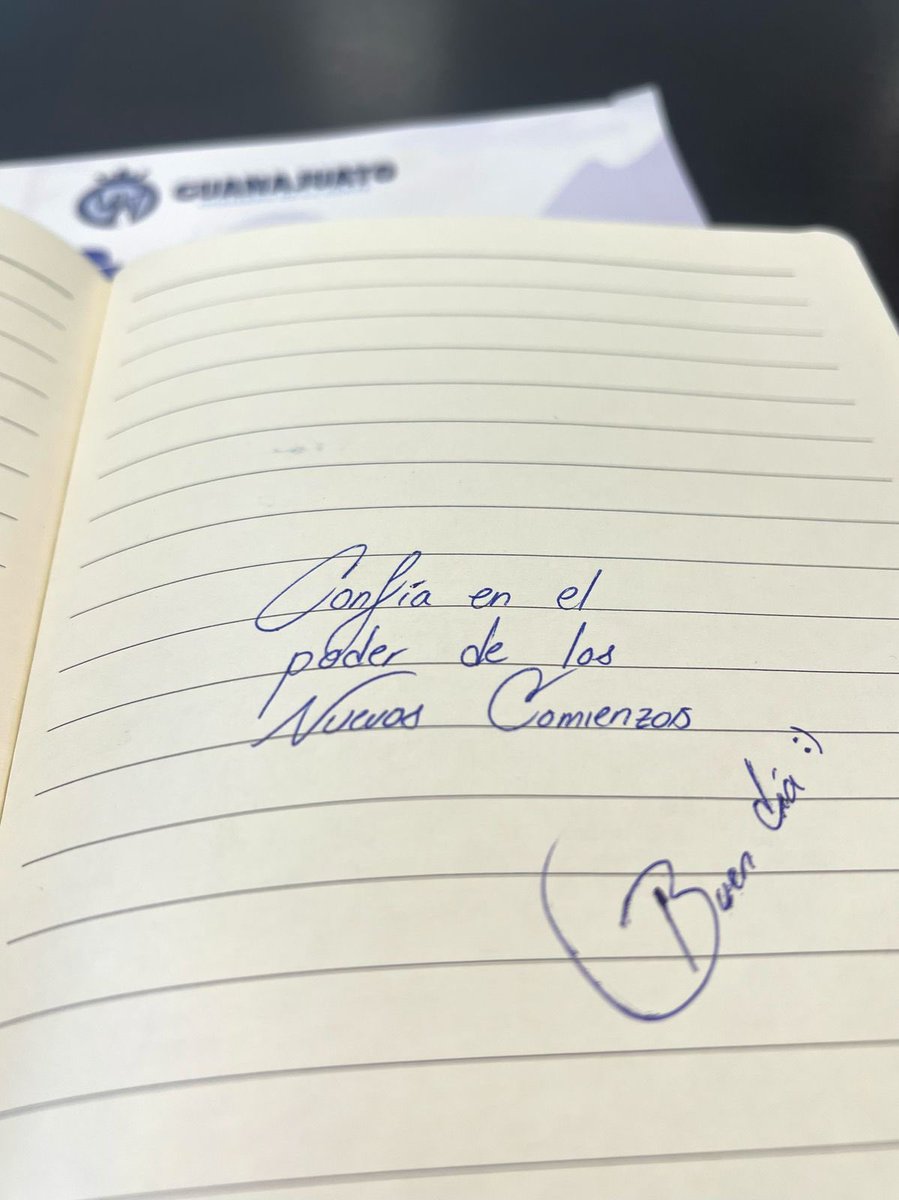 GUANAJUATO
Confía en el
poder de los
Nuevos Comienzos
Buen día :)